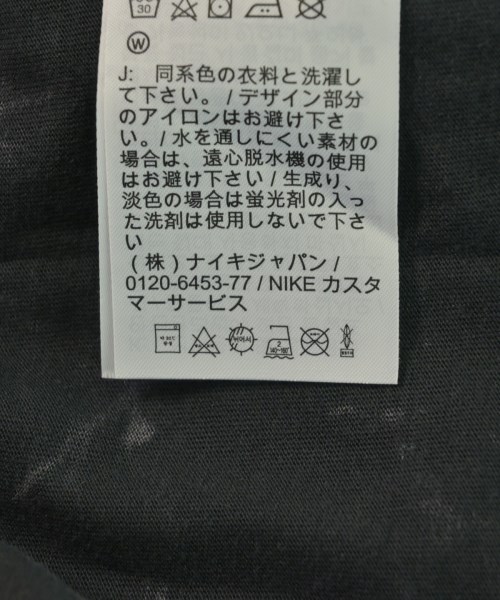 30
W
J: 同系色の衣料と洗濯し
て下さい。/ デザイン部分
のアイロンはお避け下さ
い。/ 水を通しにくい素材の
場合は、遠心脱水機の使用
はお避け下さい / 生成り、
淡色の場合は蛍光剤の入っ
た洗剤は使用しないで下さ
い
(株) ナイキジャパン /
0120-6453-77 / NIKE カスタ
マーサービス